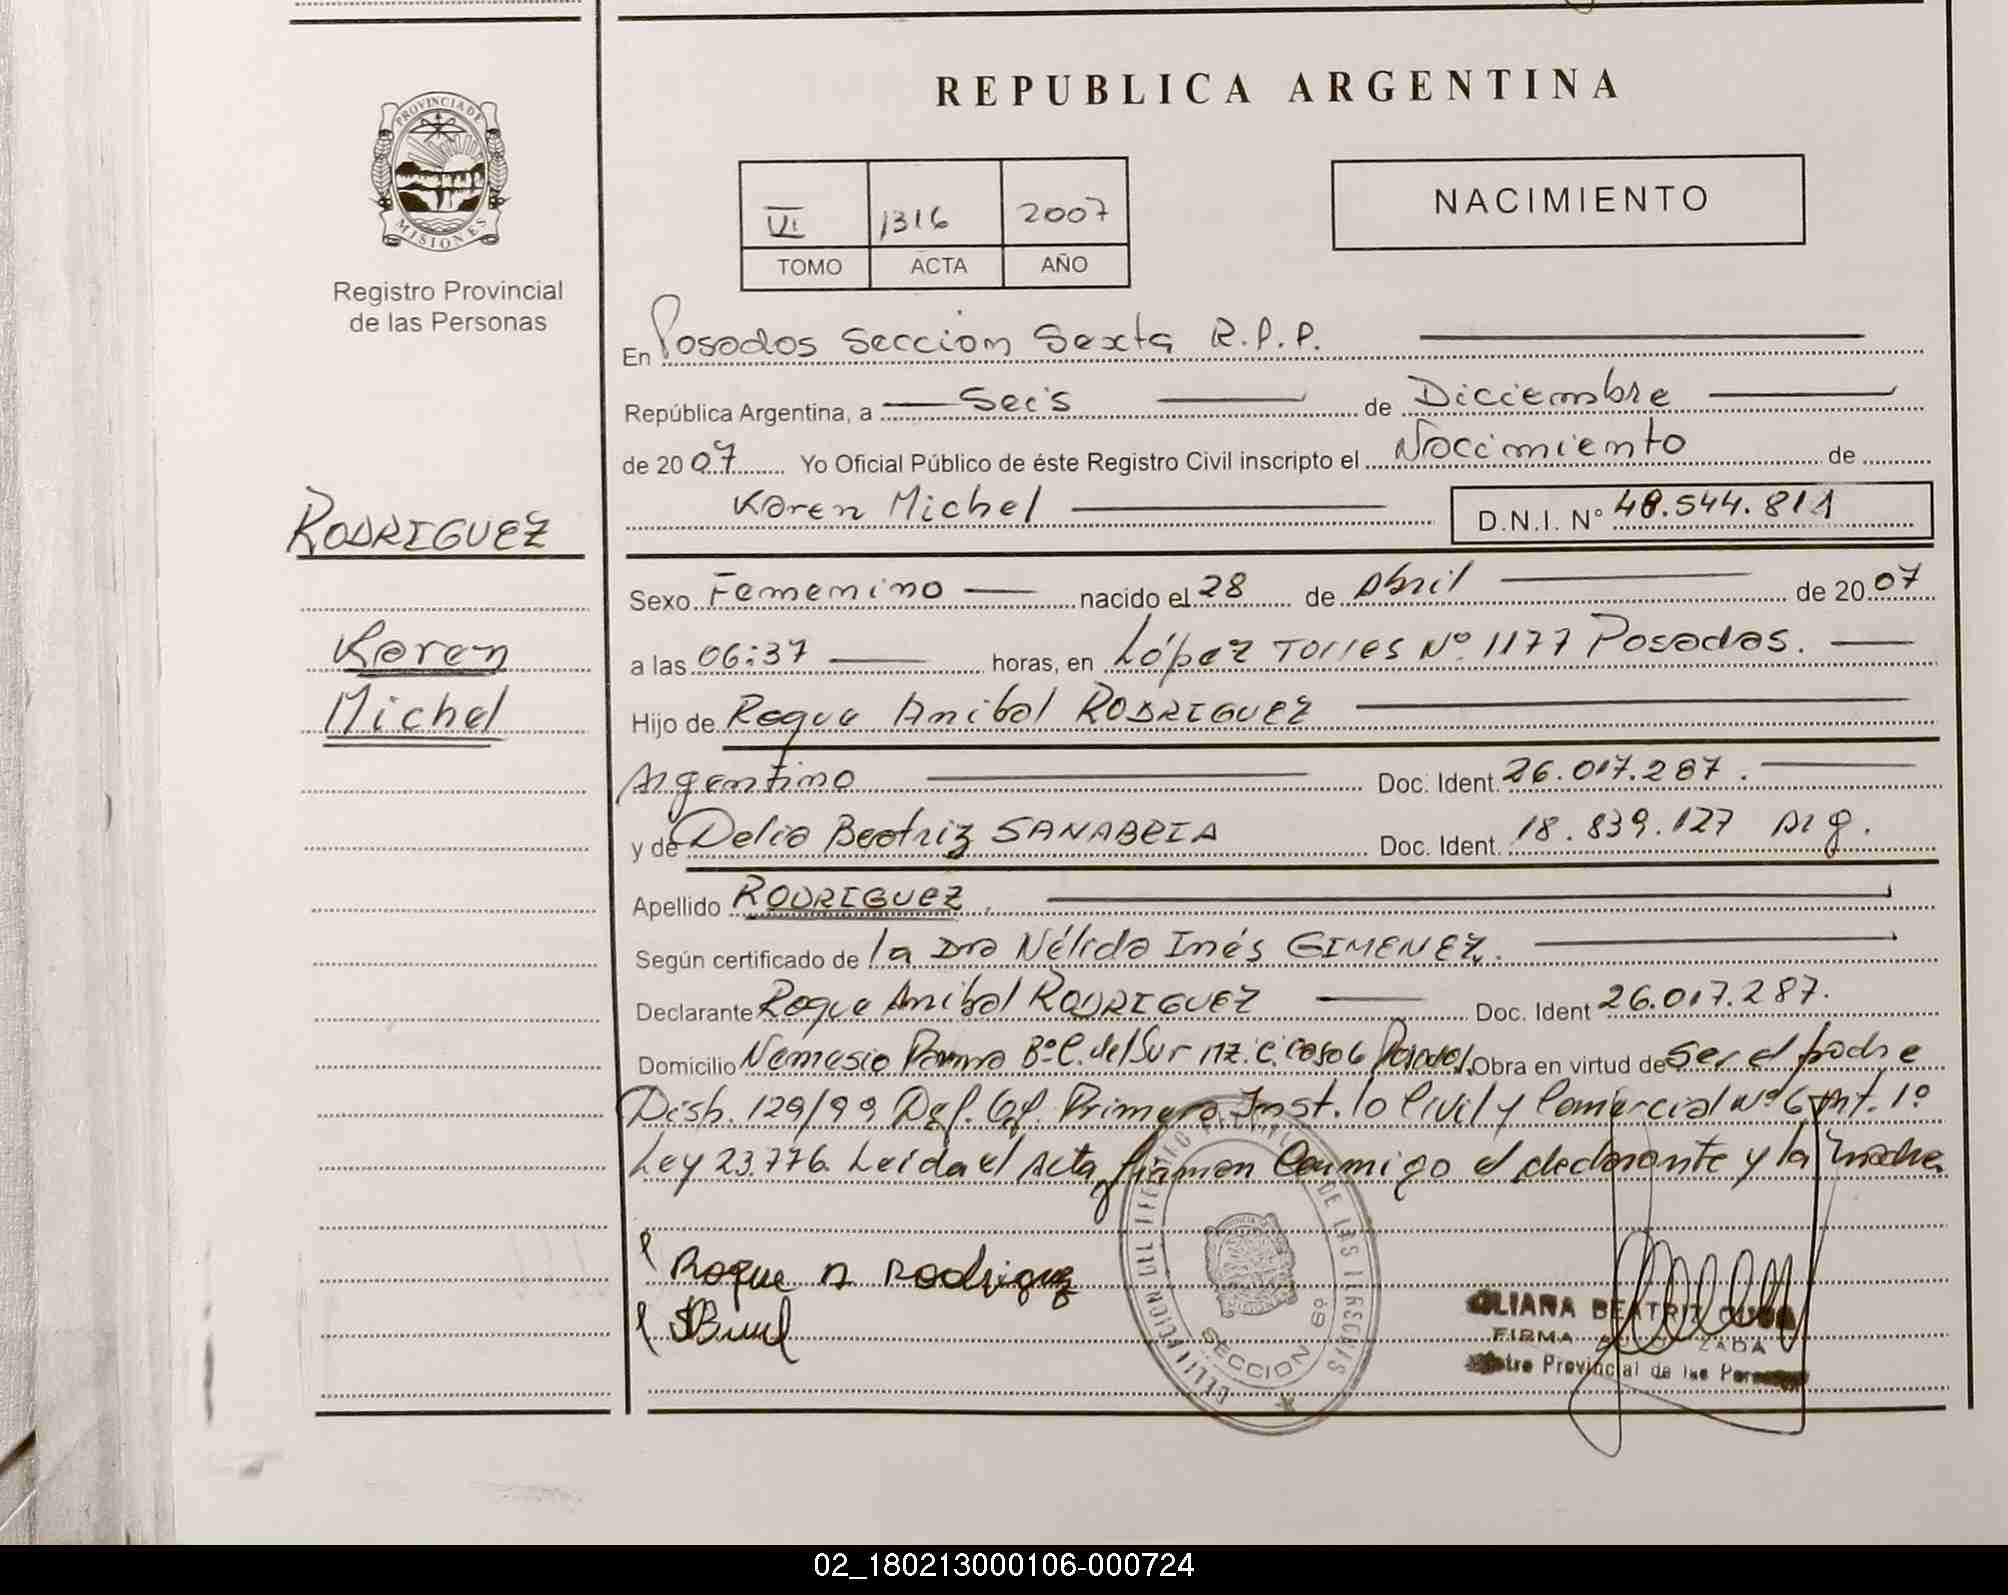 REPUBLICA ARGENTINA
PROVINCIA DE
MISIONES
Registro Provincial
de las Personas
VI 1316 2007
TOMO ACTA AÑO
NACIMIENTO
En Posadas Seccion Sexta R.P.P.
República Argentina, a Seis de Diciembre
de 2007 Yo Oficial Público de éste Registro Civil inscripto el Nacimiento de
Karen Michel D.N.I. Nº 48.544.811
RODRIGUEZ
Karen
Michel
Sexo Femenino nacido el 28 de Abril de 2007
a las 06:37 horas, en López Torres Nº 1177 Posadas.
Hijo de Roque Anibal RODRIGUEZ
Argentino Doc. Ident. 26.017.287.
y de Delia Beatriz SANABRIA Doc. Ident. 18.839.127 Arg.
Apellido RODRIGUEZ.
Según certificado de la Dra Nélida Inés GIMENEZ.
Declarante Roque Anibal RODRIGUEZ Doc. Ident 26.017.287.
Domicilio Nemesio Parma Bº C. del Sur Mz. C. Casa 6 Obra en virtud de ser el padre
Disp. 129/99 Def. Of. Primera Inst. lo Civil y Comercial Nº 6 Art. 1º
Ley 23.776. Leida el Acta firman Conmigo el declarante y la madre
Roque A Rodriguez
SECCION 6º
BEATRIZ
FIRMA
Provincial de las
02_180213000106-000724